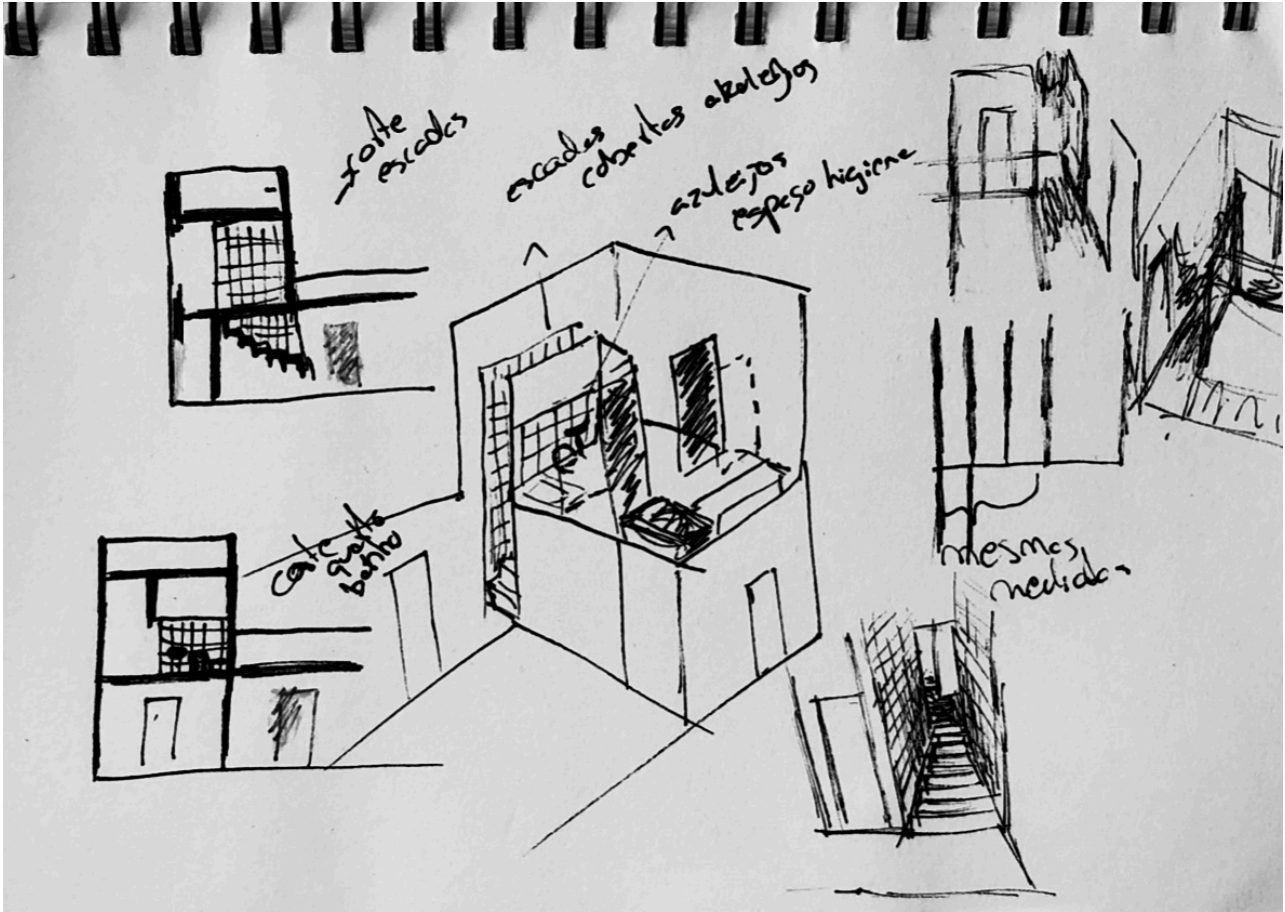 corte
escadas
escadas
cobertas azulejos
azulejos
espaço higiene
corte
quarto
banho
mesmas
medidas